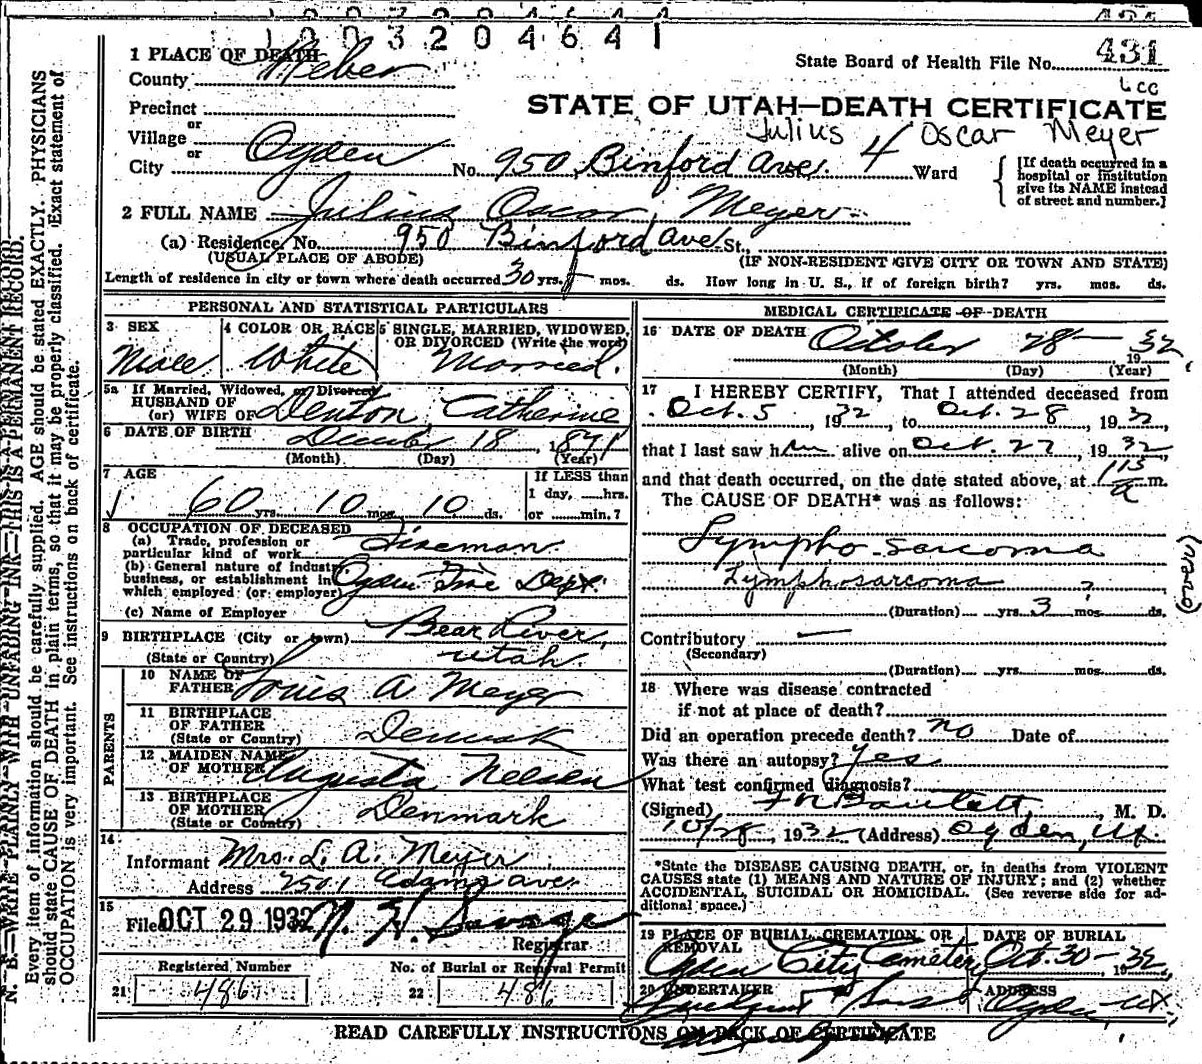 1003204641
1 PLACE OF DEATH
County Weber
State Board of Health File No. 431
Precinct
or
Village
or
City Ogden
STATE OF UTAH—DEATH CERTIFICATE
Julius Oscar Meyer
No. 950 Binford Ave. 4 Ward
[If death occurred in a
hospital or institution
give its NAME instead
of street and number.]
2 FULL NAME Julius Oscar Meyer
(a) Residence. No. 950 Binford Ave St.,
(USUAL PLACE OF ABODE) (IF NON-RESIDENT GIVE CITY OR TOWN AND STATE)
Length of residence in city or town where death occurred 30 yrs. mos. ds. How long in U. S., if of foreign birth? yrs. mos. ds.
PERSONAL AND STATISTICAL PARTICULARS
3 SEX
Male
4 COLOR OR RACE
White
5 SINGLE, MARRIED, WIDOWED,
OR DIVORCED (Write the word)
Married.
5a If Married, Widowed, or Divorced
HUSBAND OF
(or) WIFE OF Denton Catherine
6 DATE OF BIRTH December 18, 1871
(Month) (Day) (Year)
7 AGE
60 yrs. 10 mos. 10 ds.
If LESS than
1 day, hrs.
or min.?
8 OCCUPATION OF DECEASED
(a) Trade, profession or
particular kind of work Fireman
(b) General nature of industry
business, or establishment in
which employed (or employer) Ogden Fire Dept.
(c) Name of Employer
9 BIRTHPLACE (City or town) Bear River,
(State or Country) Utah.
PARENTS
10 NAME OF
FATHER Louis A Meyer
11 BIRTHPLACE
OF FATHER
(State or Country) Denmark
12 MAIDEN NAME
OF MOTHER Augusta Nelsen
13 BIRTHPLACE
OF MOTHER
(State or Country) Denmark
14
Informant Mrs. L. A. Meyer
Address 2501 ave
15
Filed OCT 29 1932
Registrar
Registered Number
21 486
No. of Burial or Removal Permit
22 486
MEDICAL CERTIFICATE OF DEATH
16 DATE OF DEATH October 28 1932
(Month) (Day) (Year)
17 I HEREBY CERTIFY, That I attended deceased from
Oct. 5, 1932, to Oct. 28, 1932,
that I last saw him alive on Oct. 27, 1932,
and that death occurred, on the date stated above, at 115 a m.
The CAUSE OF DEATH* was as follows:
Lympho-sarcoma
Lymphosarcoma
(over)
(Duration) yrs. 3 mos. ? ds.
Contributory —
(Secondary)
(Duration) yrs. mos. ds.
18 Where was disease contracted
if not at place of death?
Did an operation precede death? no Date of
Was there an autopsy? Yes
What test confirmed diagnosis?
(Signed) Bartlett, M. D.
10/28, 1932 (Address) Ogden, Ut.
*State the DISEASE CAUSING DEATH, or, in deaths from VIOLENT
CAUSES state (1) MEANS AND NATURE OF INJURY; and (2) whether
ACCIDENTAL, SUICIDAL OR HOMICIDAL. (See reverse side for ad-
ditional space.)
19 PLACE OF BURIAL, CREMATION, OR
REMOVAL
Ogden City Cemetery
DATE OF BURIAL
Oct. 30- 1932,
20 UNDERTAKER
ADDRESS
Ogden, Ut.
READ CAREFULLY INSTRUCTIONS ON BACK OF CERTIFICATE
N. B.—WRITE PLAINLY WITH UNFADING INK—THIS IS A PERMANENT RECORD.
Every item of information should be carefully supplied. AGE should be stated EXACTLY. PHYSICIANS
should state CAUSE OF DEATH in plain terms, so that it may be properly classified. Exact statement of
OCCUPATION is very important. See instructions on back of certificate.